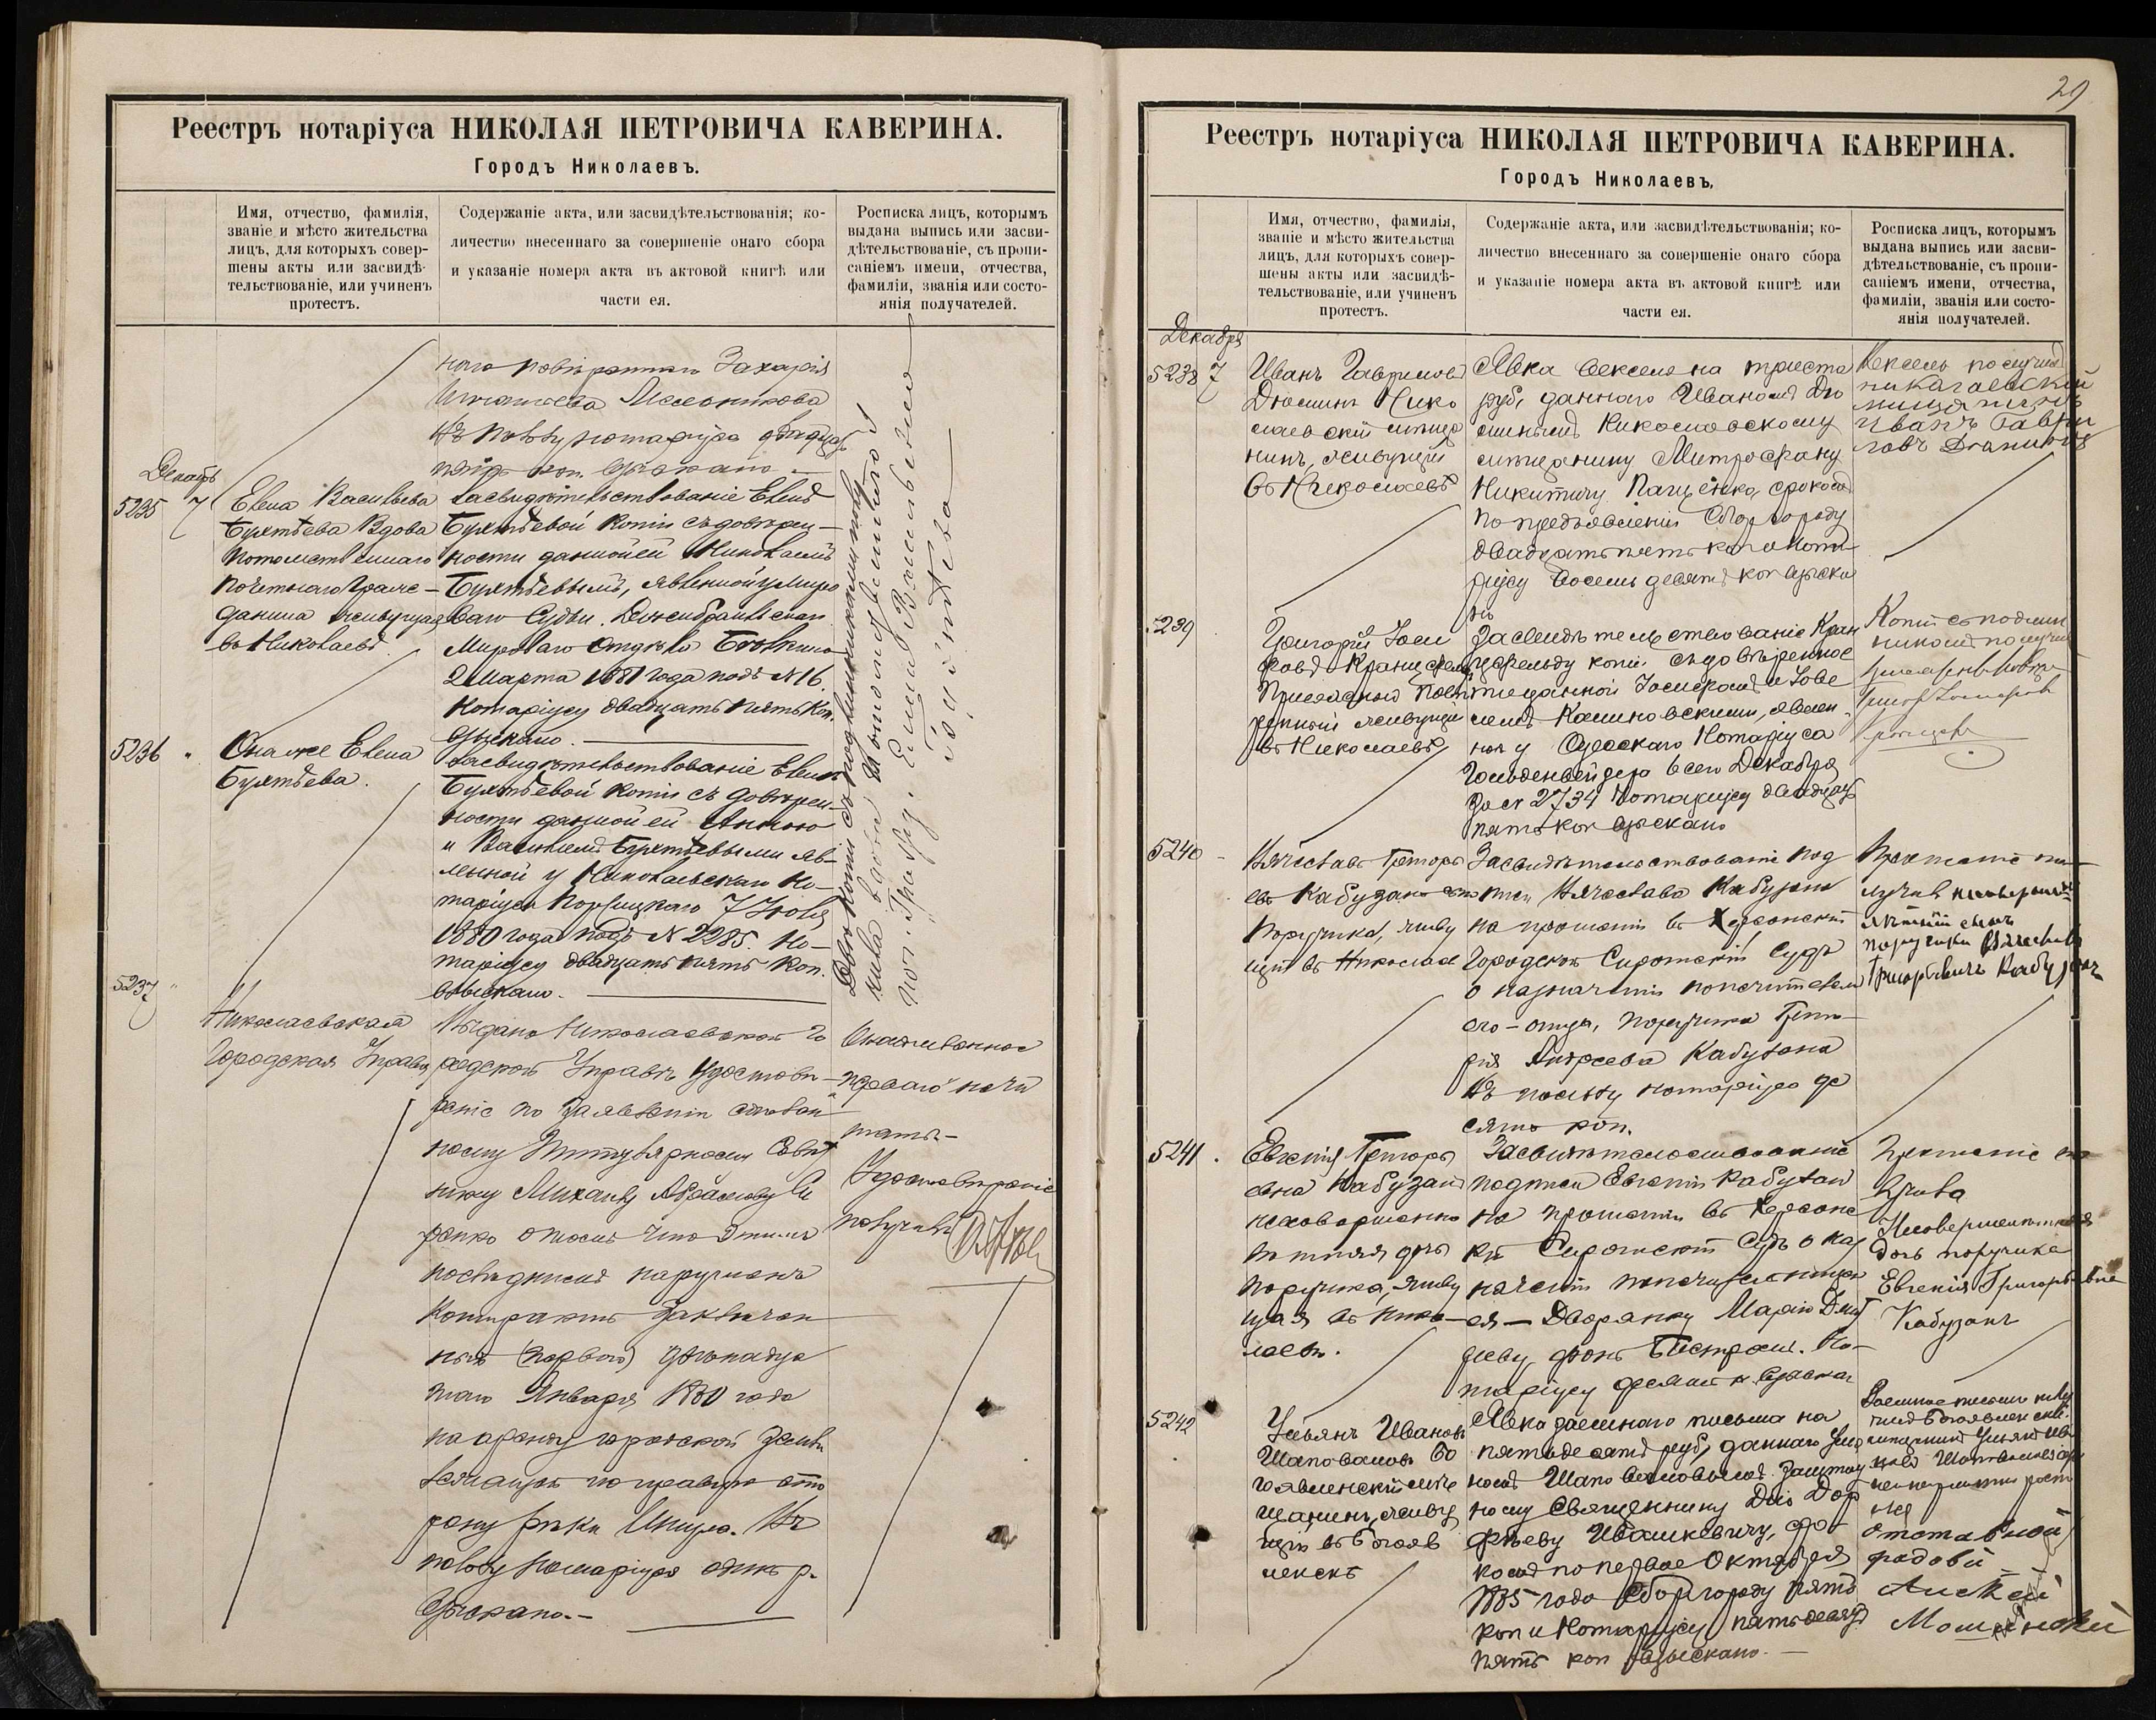 Реестръ нотаріуса НИКОЛАЯ ПЕТРОВИЧА КАВЕРИНА.
Городъ Николаевъ.
Имя, отчество, фамилія,
званіе и мѣсто жительства
лицъ, для которыхъ совер-
шены акты или засвидѣ-
тельствованіе, или учиненъ
протестъ.
Содержаніе акта, или засвидѣтельствованія; ко-
личество внесеннаго за совершеніе онаго сбора
и указаніе номера акта въ актовой книгѣ или
части ея.
Росписка лицъ, которымъ
выдана выпись или засви-
дѣтельствованіе, съ пропи-
саніемъ имени, отчества,
фамиліи, званія или состо-
янія получателей.
наго повѣреннаго Захарія
Мельникова
Въ пользу нотаріуса двадцать
пять коп. взыскано
Декабрь
5235 7
Елена Васильева
Бухтѣева Вдова
Потомственнаго
Почетнаго Граж-
данина живущая
въ Николаевѣ
Засвидѣтельствованіе Еленѣ
Бухтѣевой копіи съ довѣрен-
ности данной ей Николаемъ
Бухтѣевымъ, явленной у Миро
ваго Судьи
Мироваго отдѣла
2 Марта 1881 года подъ № 16.
Нотаріусу двадцать пять коп.
взыскано.
Двѣ копіи съ подлинниками получила
вдова Потомственнаго
поч. Гражд. Елена Васильевна
Бухтѣева
5236 "
Она же Елена
Бухтѣева.
Засвидѣтельствованіе Еленѣ
Бухтѣевой копіи съ довѣрен-
ности данной ей Анною
и Василіемъ Бухтѣевыми яв-
ленной у Николаевскаго Но-
таріуса 7 Іюля
1880 года подъ № 2285. Но-
таріусу двадцать пять коп.
взыскано.
5237 "
Николаевская
Городская Управа
Выдано Николаевской Го
родской Управѣ удостовѣ-
реніе по заявленію
ному Титулярному Совѣт
нику Михаилу Абрамову
о томъ что этимъ
послѣднимъ нарушенъ
контрактъ заключен
ный (первого) двѣнадца
таго Января 1880 года
на аренду городской земли
лежащей по правую сто
рону рѣки Ингула. Въ
пользу Нотаріуса одинъ р.
взыскано.-
Удостовѣреніе
получилъ
Реестръ нотаріуса НИКОЛАЯ ПЕТРОВИЧА КАВЕРИНА.
Городъ Николаевъ.
29
Имя, отчество, фамилія,
званіе и мѣсто жительства
лицъ, для которыхъ совер-
шены акты или засвидѣ-
тельствованіе, или учиненъ
протестъ.
Содержаніе акта, или засвидѣтельствованія; ко-
личество внесеннаго за совершеніе онаго сбора
и указаніе номера акта въ актовой книгѣ или
части ея.
Росписка лицъ, которымъ
выдана выпись или засви-
дѣтельствованіе, съ пропи-
саніемъ имени, отчества,
фамиліи, званія или состо-
янія получателей.
Декабря
5238 7
Иванъ Гавриловъ
Дюминъ Нико
лаевскій мѣща
нинъ, живущій
въ Николаевѣ
Явка векселя на триста
руб, даннаго Иваномъ Дю
минымъ Николаевскому
мѣщанину Митрофану
Никитичу Пащенко, срокомъ
по предъявленіи Сбор городу
двадцать пять коп и Нота
ріусу восемьдесятъ коп взыска
но
Вексель получилъ
николаевскій
мищанинъ
Иванъ Гаври
ловъ Дюминъ
5239
Григорій Іоси
фовъ Кранцфельдъ
Присяжный Повѣ
ренный живущій
въ Николаевѣ
Засвидѣтельствованіе Кран
цфельду копіи съ довѣренно
сти данной Іосифомъ и
Калиновскими, явлен
ной у Одесскаго Нотаріуса
Гольденвейзера 6 сего Декабря
за № 2734 Нотаріусу двадцать
пять коп взыскано
Копію съ подлин
никомъ получилъ
5240 -
Вячеславъ Григорь
евъ Кабузанъ сынъ
Поручика, живу
щій въ Николаевѣ
Засвидѣтельствованіе под
писи Вячеслава Кабузана
на прошеніи въ Херсонскій
Городской Сиротскій Судъ
о назначеніи попечителемъ
его - отца, поручика Григо-
рія Андреева Кабузана
Въ пользу нотаріуса де
сять коп.
Прошеніе по-
лучилъ несовершенно
лѣтній сынъ
поручика Вячеславъ
Григорьевичъ Кабузанъ
5241 .
Евгенія Григорь
евна Кабузанъ
несовершенно
лѣтняя дочь
поручика, живу
щая въ Нико-
лаевѣ.
Засвидѣтельствованіе
подписи Евгеніи Кабузанъ
на прошеніи въ Херсонс
кій Сиротскій Судъ о наз
наченіи попечительницей
ея - Дворянку Марію
фонъ Бистромъ. Но-
таріусу десять к. взыскан
Прошеніе по
лучила
Несовершеннолѣтняя
дочь поручика
Евгенія Григорьевна
Кабузанъ
5242
Ульянъ Ивановъ
Шаповаловъ Бо
гоявленскій мѣ
щанинъ, живу
щій въ Богояв
ленскѣ
Явка заемнаго письма на
пятьдесятъ руб, даннаго Улья
номъ Шаповаловымъ Заштат
ному Священнику
Ивашкевичу, сро-
комъ по первое Октября
1885 года Сбор городу пять
коп и Нотаріусу пятьдесятъ
пять коп взыскано.
Заемное письмо полу
чилъ Богоявленскій
мищанинъ Ульянъ Ива
новъ Шаповаловъ
отставной
рядовой